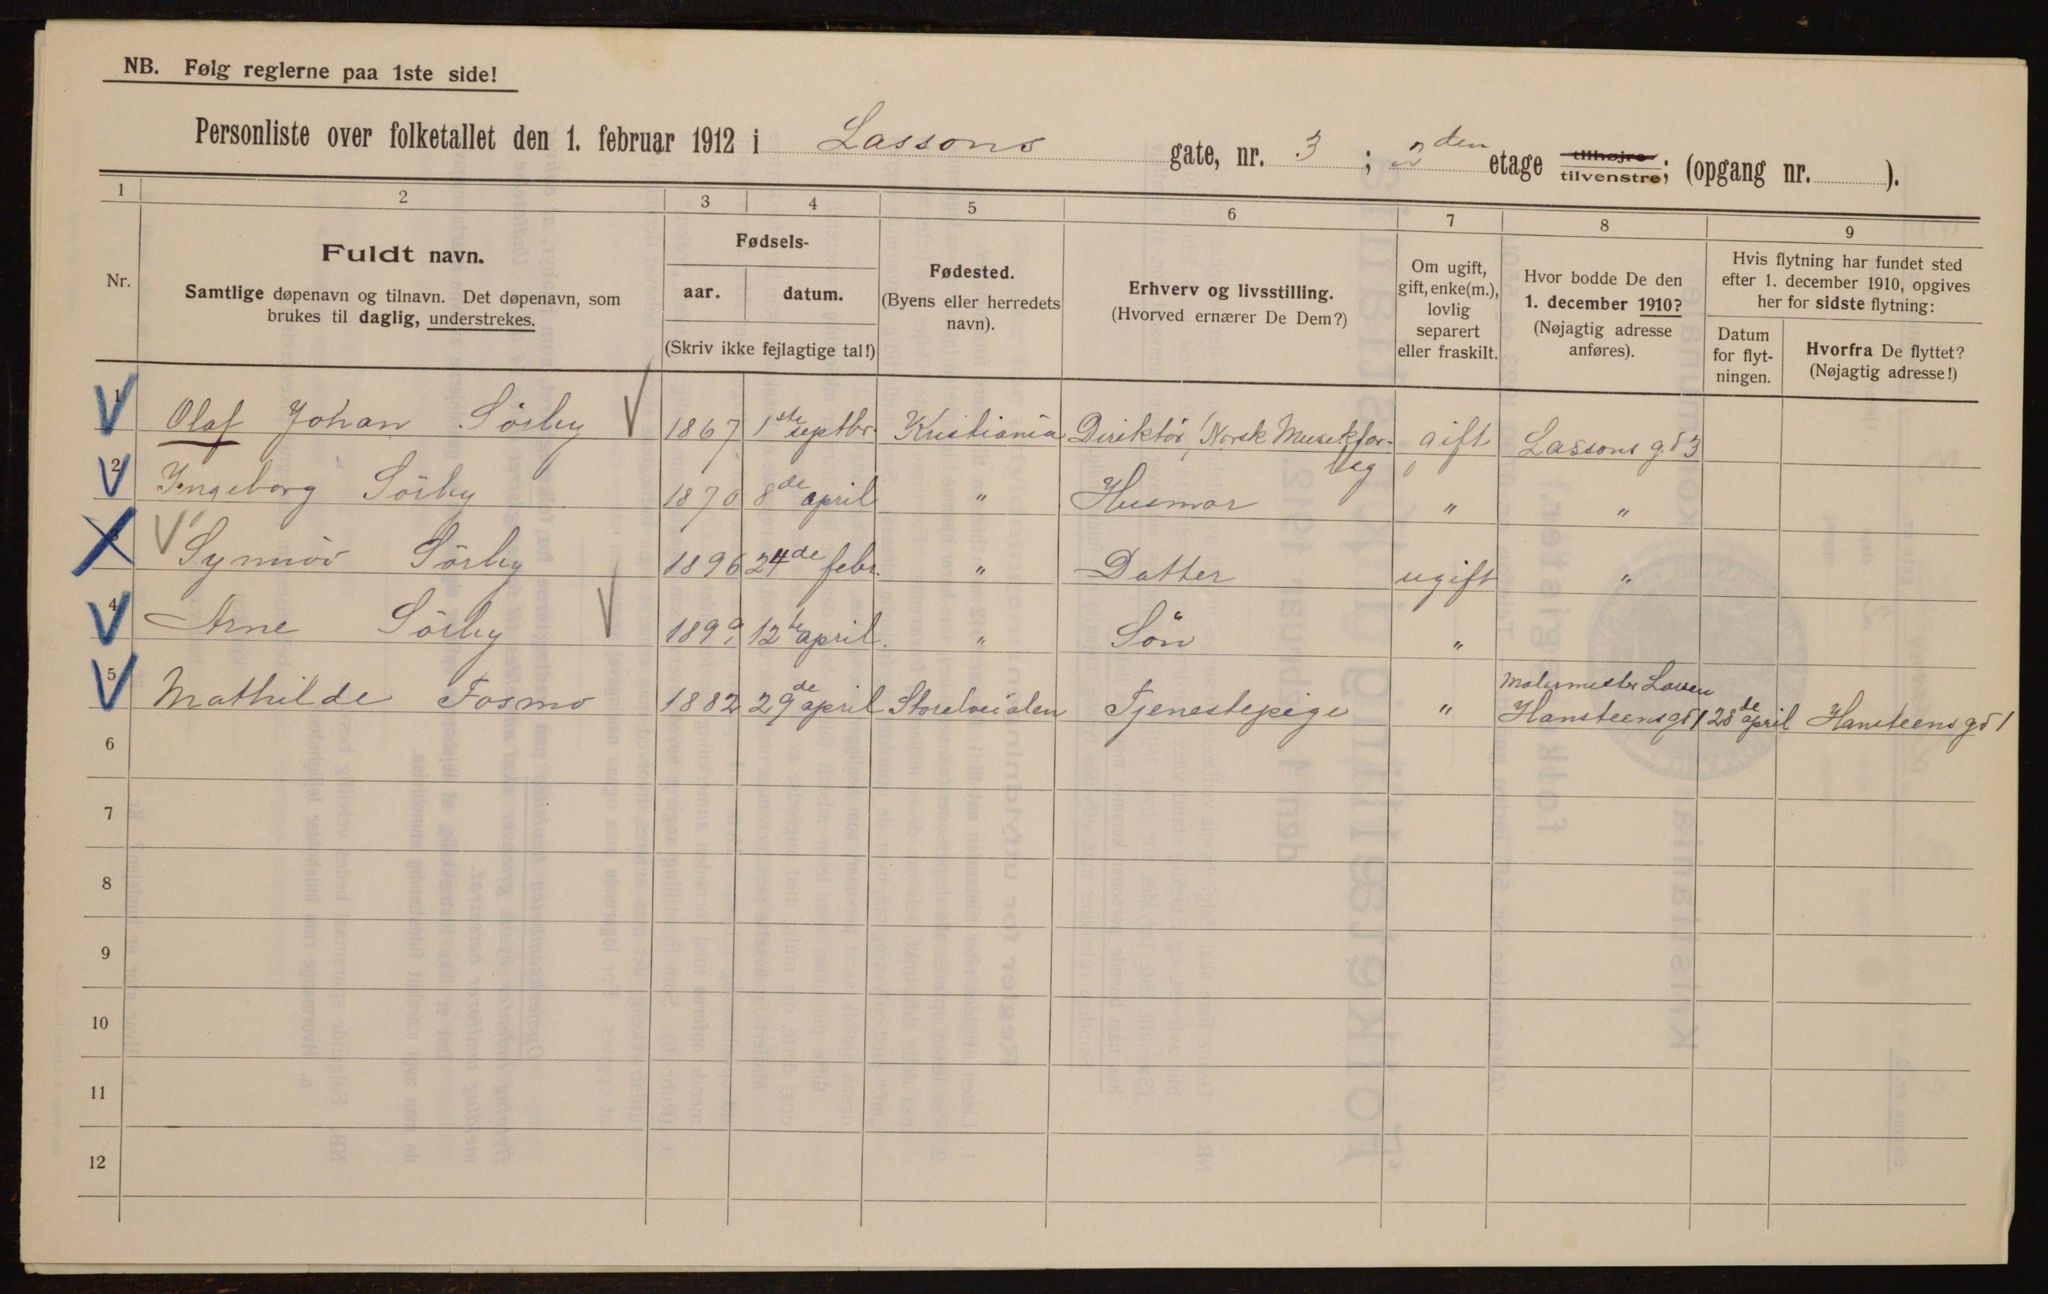 NB. Følg reglerne paa 1ste side!
Personliste over folketallet den 1. februar 1912 i Lassons gate, nr. 3 ; 2den etage tilhøjre tilvenstre; (opgang nr. ).
1 2 3 4 5 6 7 8 9
Nr.
Fuldt navn.
Samtlige døpenavn og tilnavn. Det døpenavn, som
brukes til daglig, understrekes.
Fødsels-
aar. datum.
(Skriv ikke fejlagtige tal!)
Fødested.
(Byens eller herredets
navn).
Erhverv og livsstilling.
(Hvorved ernærer De Dem?)
Om ugift,
gift, enke(m.),
lovlig
separert
eller fraskilt.
Hvor bodde De den
1. december 1910?
(Nøjagtig adresse
anføres).
Hvis flytning har fundet sted
efter 1. december 1910, opgives
her for sidste flytning:
Datum
for flyt-
ningen.
Hvorfra De flyttet?
(Nøjagtig adresse!)
1 Olaf Johan Sörby 1867 1ste septbr. Kristiania Direktör, Norsk Musikfor- gift Lassons gd 3
lag
2 Ingeborg Sörby 1870 8de april " Husmor " "
3 Synnöv Sörby 1896 24de febr. " Datter ugift "
4 Arne Sörby 1899 12te april. " Sön "
5 Mathilde Fosmo 1882 29de april Storelveialen Tjenestepige " Malermester
Hansteensgd 1 28de april Hansteens gd 1
6
7
8
9
10
11
12